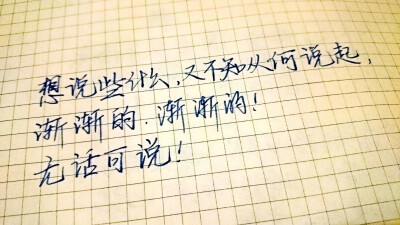 想说些什么,又不知从何说起,
渐渐的.渐渐的!
无话可说!